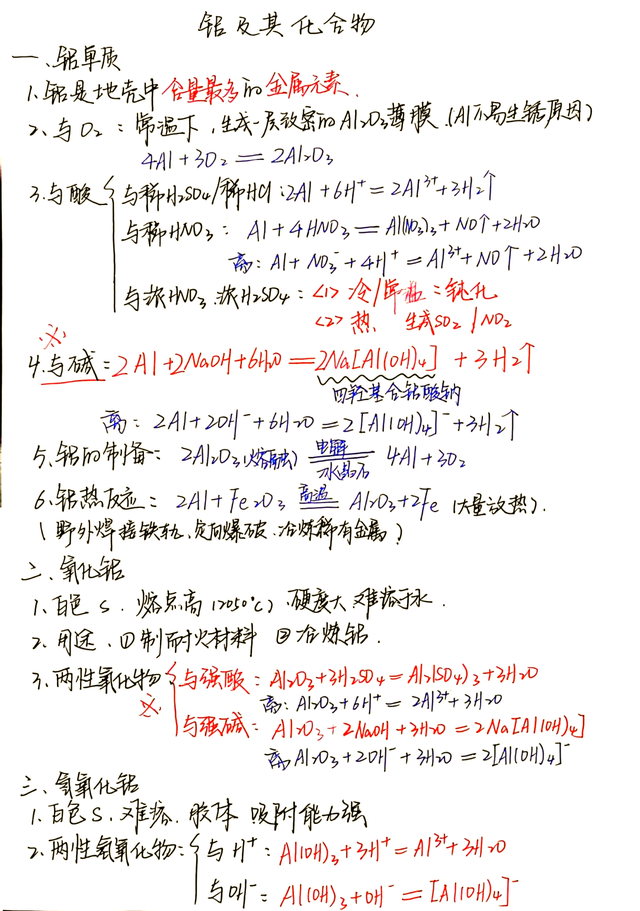 铝及其化合物
一、铝单质
1.铝是地壳中含量最多的金属元素.
2、与O₂：常温下，生成一层致密的Al₂O₃薄膜.(Al不易生锈原因)
4Al+3O₂＝2Al₂O₃
3.与酸{与稀H₂SO₄/稀HCl:2Al+6H⁺＝2Al³⁺+3H₂↑
与稀HNO₃：Al+4HNO₃＝Al(NO₃)₃+NO↑+2H₂O
离:Al+NO₃⁻+4H⁺＝Al³⁺+NO↑+2H₂O
与浓HNO₃.浓H₂SO₄：<1>冷/常温：钝化
<2>热 生成SO₂/NO₂
※
4.与碱:2Al+2NaOH+6H₂O＝2Na[Al(OH)₄]+3H₂↑
四羟基合铝酸钠
离：2Al+2OH⁻+6H₂O＝2[Al(OH)₄]⁻+3H₂↑
5、铝的制备：2Al₂O₃(熔融) 电解 冰晶石 4Al+3O₂
6.铝热反应：2Al+Fe₂O₃ 高温 Al₂O₃+2Fe (大量放热).
(野外焊接铁轨、定向爆破、冶炼稀有金属)
二、氧化铝
1.白色S.熔点高(2050℃).硬度大.难溶于水.
2.用途.①制耐火材料 ②冶炼铝.
3.两性氧化物{与强酸：Al₂O₃+3H₂SO₄＝Al₂(SO₄)₃+3H₂O
※ 离:Al₂O₃+6H⁺＝2Al³⁺+3H₂O
与强碱：Al₂O₃+2NaOH+3H₂O＝2Na[Al(OH)₄]
离Al₂O₃+2OH⁻+3H₂O＝2[Al(OH)₄]⁻
三、氢氧化铝
1.白色S.难溶.胶体 吸附能力强
2.两性氢氧化物:{与H⁺：Al(OH)₃+3H⁺＝Al³⁺+3H₂O
与OH⁻：Al(OH)₃+OH⁻＝[Al(OH)₄]⁻